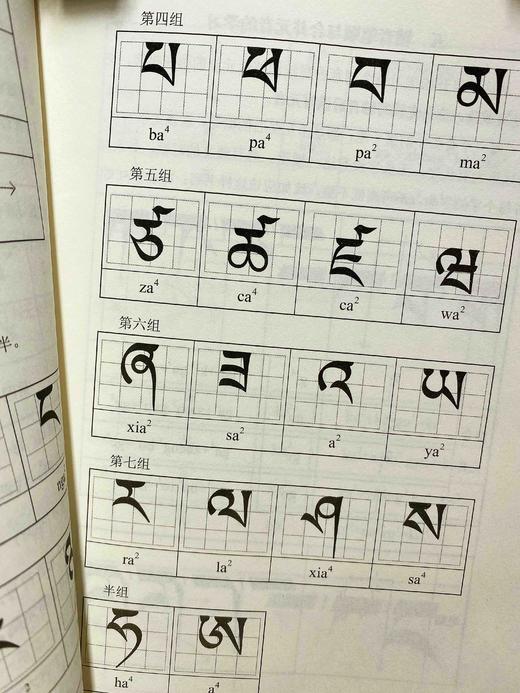 第四组
པ ཕ བ མ
ba⁴ pa⁴ pa² ma²
第五组
ཙ ཚ ཛ ཝ
za⁴ ca⁴ ca² wa²
第六组
ཞ ཟ འ ཡ
xia² sa² a² ya²
第七组
ར ལ ཤ ས
ra² la² xia⁴ sa⁴
半组
ཧ ཨ
ha⁴ a⁴
半。
→
ང